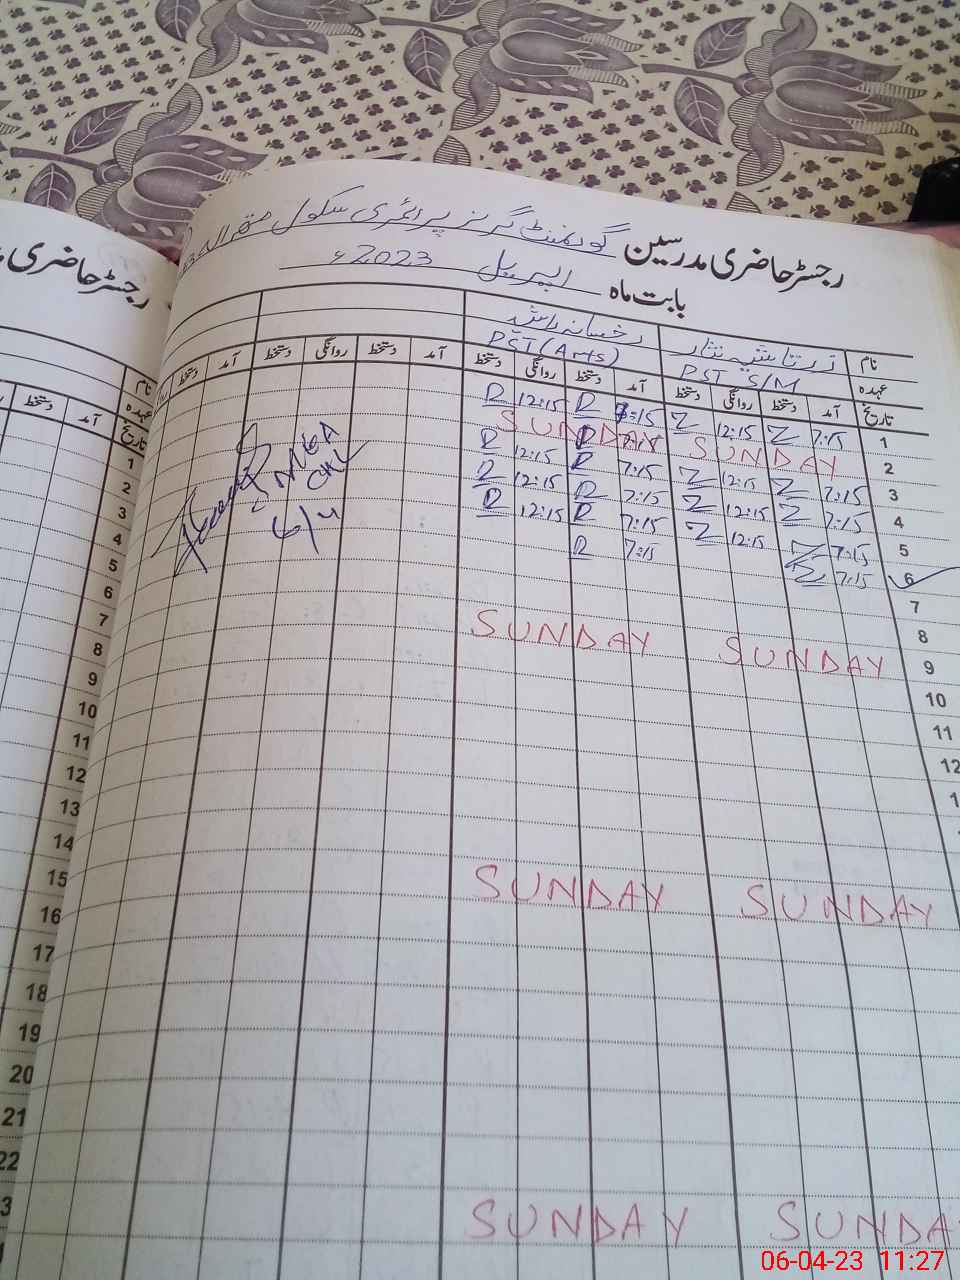 رجسٹر حاضری مدرسین گورنمنٹ گرلز پرائمری سکول
بابت ماہ اپریل 2023ء
رجسٹر حاضری
نام
عہدہ PST S/M PST (Arts)
تاریخ آمد دستخط روانگی دستخط آمد دستخط روانگی دستخط آمد دستخط روانگی دستخط آمد دستخط
1 7:15 Z 12:15 Z 8:15 R 12:15 R
2 SUNDAY SUNDAY
3 7:15 Z 12:15 Z 7:15 R 12:15 R
4 7:15 Z 12:15 Z 7:15 R 12:15 R
5 7:15 Z 12:15 Z 7:15 R 12:15 R
6 7:15 Z 7:15 R
7
8
9 SUNDAY SUNDAY
10
11
12
SUNDAY SUNDAY
SUNDAY SUNDA
6/4
نام
عہدہ
تاریخ آمد دستخط
1
2
3
4
5
6
7
8
9
10
11
12
13
14
15
16
17
18
19
20
21
22
3
06-04-23 11:27